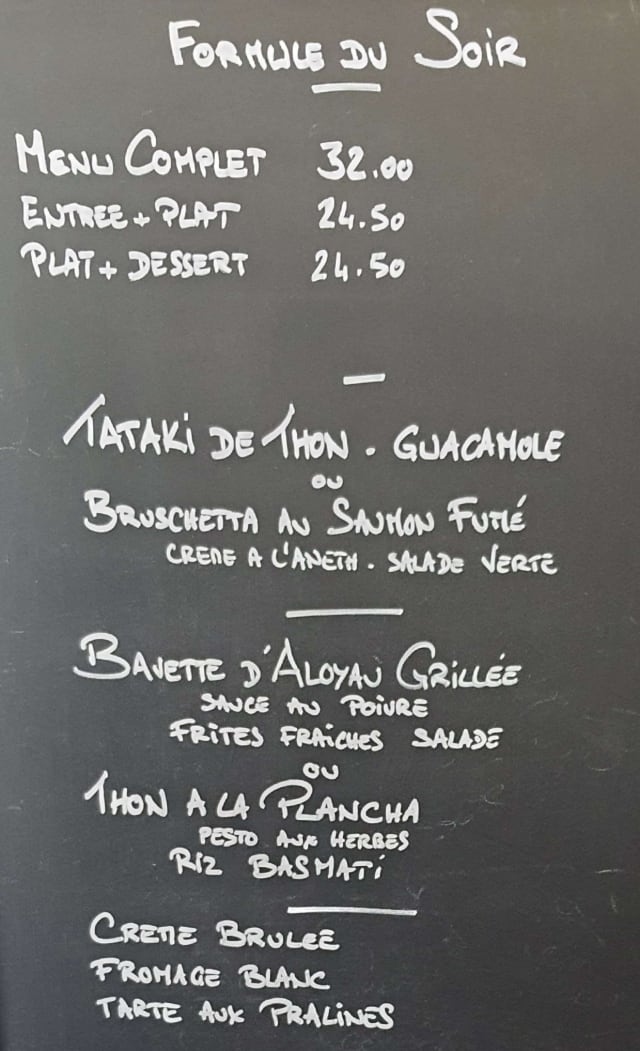 FORMULE DU SOIR
MENU COMPLET 32.00
ENTREE + PLAT 24.50
PLAT + DESSERT 24.50
TATAKI DE THON . GUACAMOLE
OU
BRUSCHETTA AU SAUMON FUMÉ
CREME A L'ANETH . SALADE VERTE
BAVETTE D'ALOYAU GRILLÉE
SAUCE AU POIVRE
FRITES FRAÎCHES SALADE
OU
THON A LA PLANCHA
PESTO AUX HERBES
RIZ BASMATI
CREME BRULEE
FROMAGE BLANC
TARTE AUX PRALINES